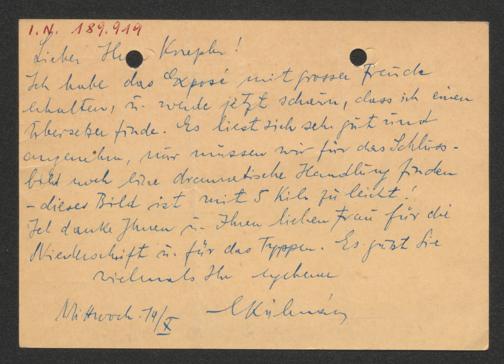 I.N. 189.919
Lieber Herr Knepler!
Ich habe das Exposé mit grosser Freude
erhalten, u. werde jetzt schaun, dass ich einen
Übersetzer finde. Es liest sich sehr gut und
angenehm, nur müssen wir für das Schluss-
bild noch eine dramatische Handlung finden
- dieses Bild ist mit 5 Kilo zu leicht!
Ich danke Ihnen u. Ihrer lieben Frau für die
Niederschrift u. für das Typpen. Es grüßt Sie
vielmals Ihr ergebener
Mittwoch. 19/X EKálmán